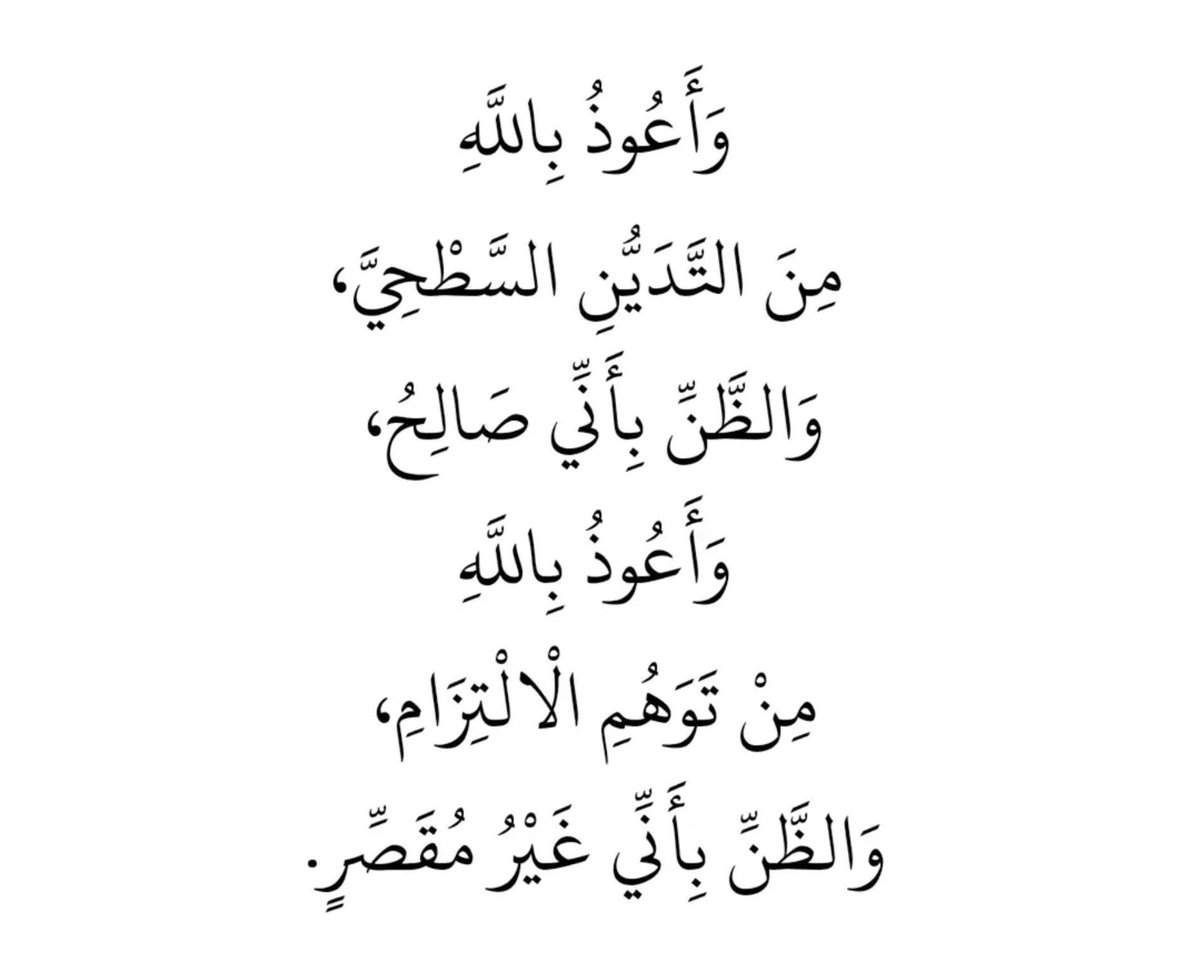 وَأَعُوذُ بِاللَّهِ
مِنَ التَّدَيُّنِ السَّطْحِيَّ،
وَالظَّنِّ بِأَنِّي صَالِحُ،
وَأَعُوذُ بِاللَّهِ
مِنْ تَوَهُمِ الْالْتِزَامِ،
وَالظَّنِّ بِأَنِّي غَيْرُ مُقَصِّرٍ.